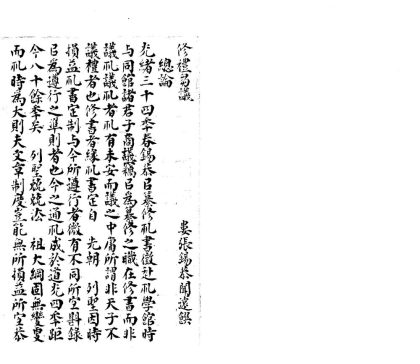 修禮芻議
婁張錫恭聞遠饌
總論
光緒三十四年春錫恭㠯纂修礼書徵赴礼學館時
与同館諸君子商議竊㠯爲纂修之職在修書而非
議礼議礼者礼有未安而議之中庸所謂非天子不
議禮者也修書者緣礼書定自 先朝 列聖因時
損益礼書定制与今所遵行者微有不同所宜斟錄
㠯爲遵行之準則者也今之通礼成於道光四年距
今八十餘年矣 列聖兢兢法 祖大綱固無變更
而礼時爲大則夫文章制度豈能無所損益所宜恭